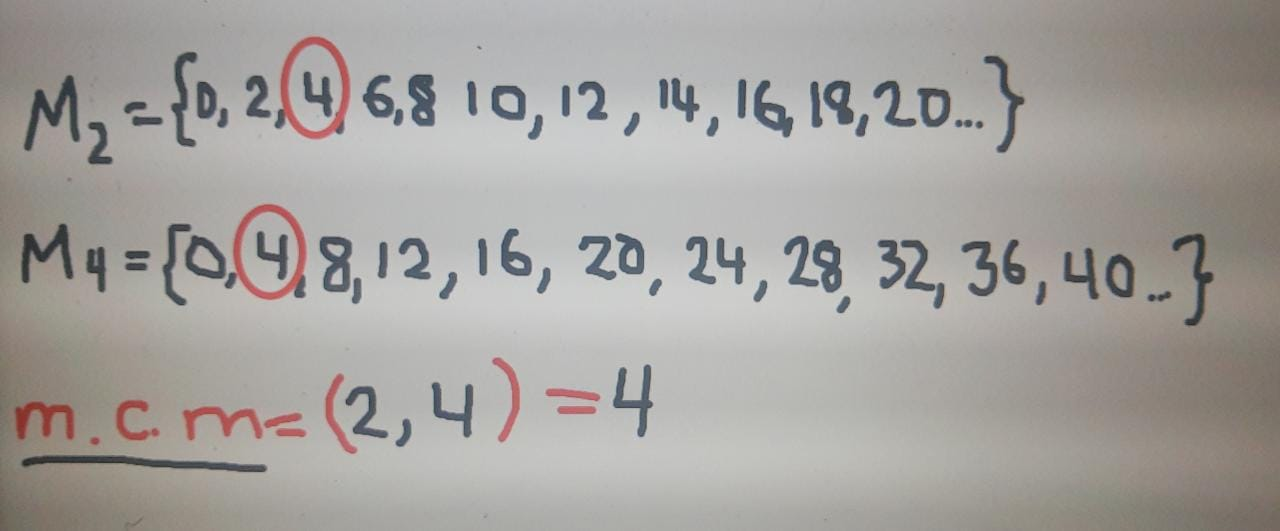 M₂ = {0, 2, 4, 6, 8 10, 12, 14, 16, 18, 20...}
M4 = {0, 4, 8, 12, 16, 20, 24, 28, 32, 36, 40...}
m.c.m = (2, 4) = 4